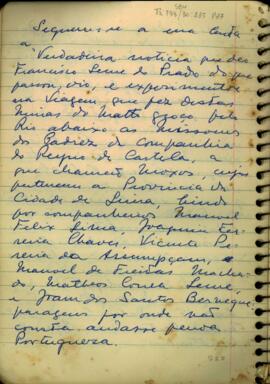 Seguem-se a uma carta
a "Verdadeira noticia que deo
Francisco Leme do Prado do que
passou, vio, e exprimentou
na Viagem que fez destas
Minas do Matto groço pelo
Rio abaixo as Missoens
dos Padres da Companhia
do Reyno de Castela, a
que chamão Moxos, cujas
pertencem a Provincia da
Cidade de Lima, hindo
por companheiros Manoel
Felix Lima, Joaquim Fer-
reira Chaves, Vicente Pe-
reira da Assumpçam, e
Manoel de Freitas Macha-
do, Matheos Correa Leme,
e Joam dos Santos
paragens por onde não
consta andasse pessoa
Portugueza.